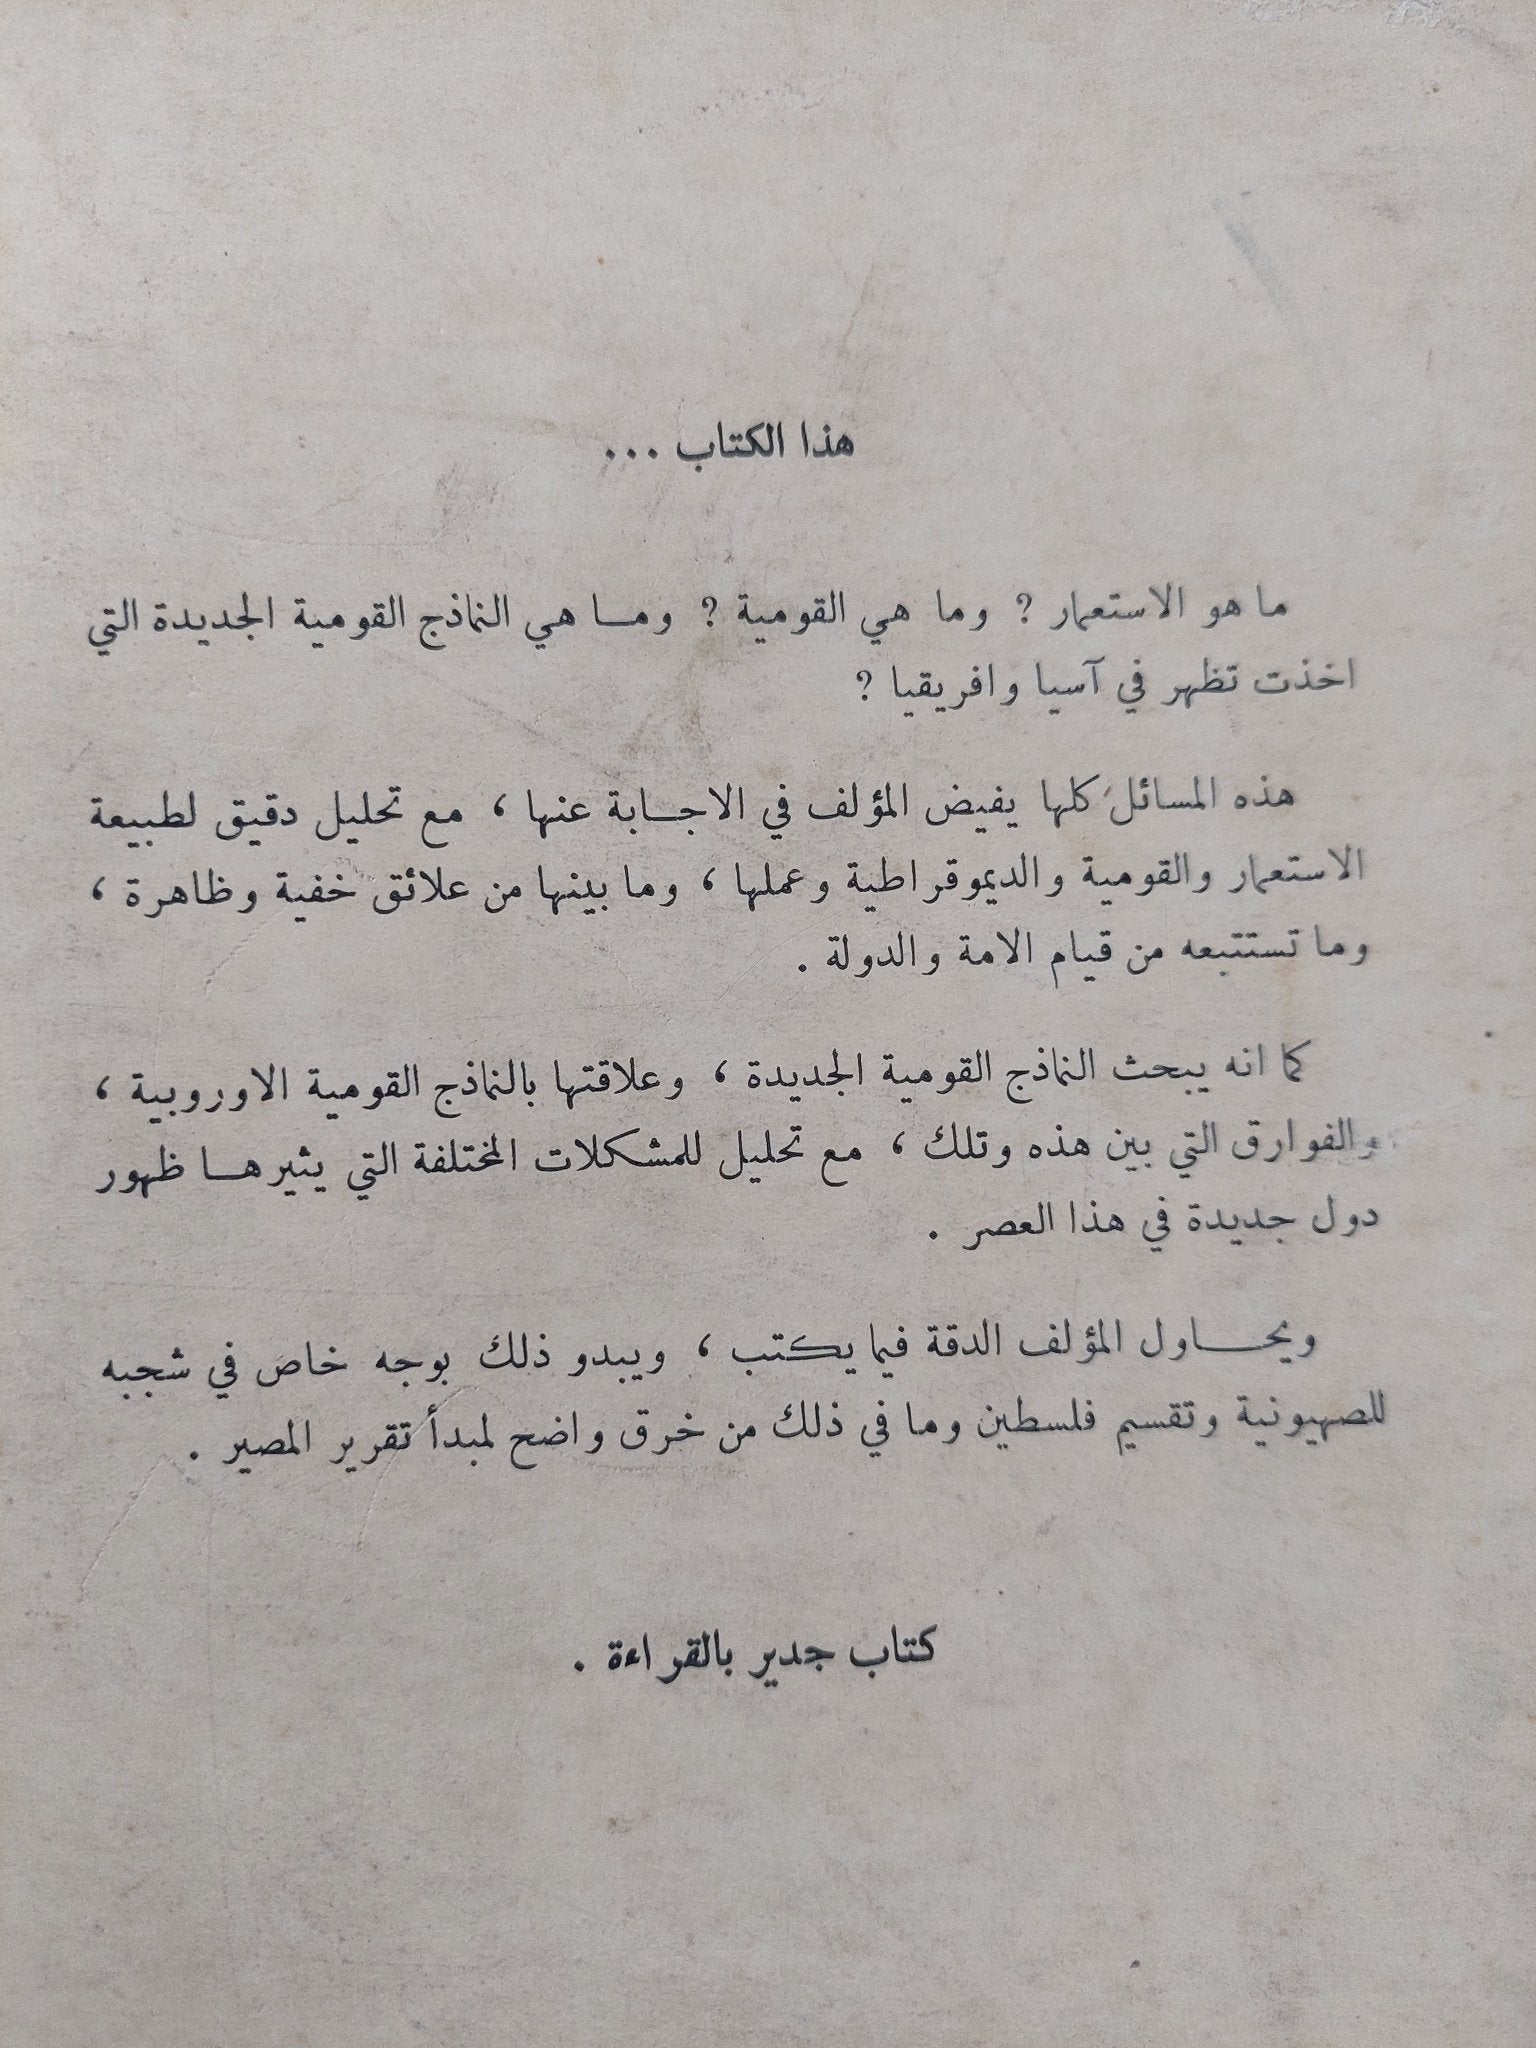 هذا الكتاب ...
ما هو الاستعمار ؟ وما هي القومية ؟ ومـا هي النماذج القومية الجديدة التي
اخذت تظهر في آسيا وافريقيا ؟
هذه المسائل كلها يفيض المؤلف في الاجـابة عنها ، مع تحليل دقيق لطبيعة
الاستعمار والقومية والديموقراطية وعملها ، وما بينها من علائق خفية وظاهرة ،
وما تستتبعه من قيام الامة والدولة .
كما انه يبحث النماذج القومية الجديدة ، وعلاقتها بالنماذج القومية الاوروبية ،
والفوارق التي بين هذه وتلك ، مع تحليل للمشكلات المختلفة التي يثيرهـا ظهور
دول جديدة في هذا العصر .
ويحـاول المؤلف الدقة فيما يكتب ، ويبدو ذلك بوجه خاص في شجبه
للصهيونية وتقسيم فلسطين وما في ذلك من خرق واضح لمبدأ تقرير المصير .
كتاب جدير بالقراءة .